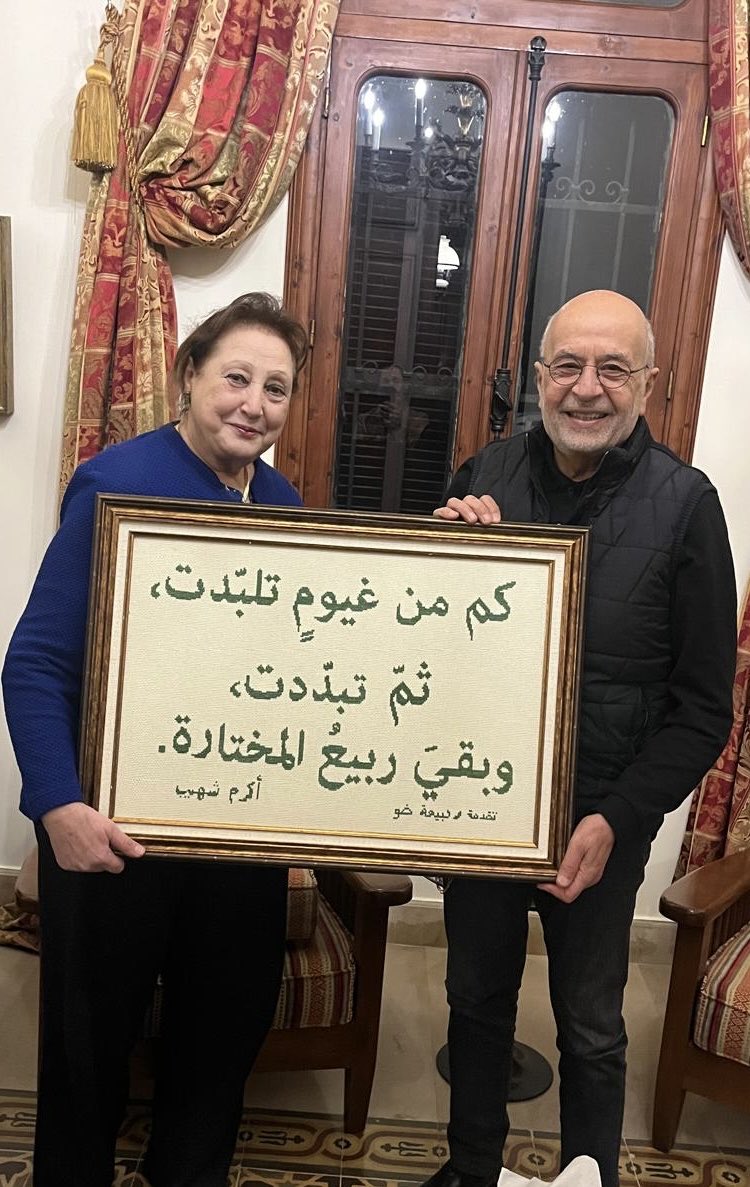 كم من غيومٍ تلبّدت،
ثمّ تبدّدت،
وبقيَ ربيعُ المختارة.
أكرم شهيب
تقدمة لبيعة ضو